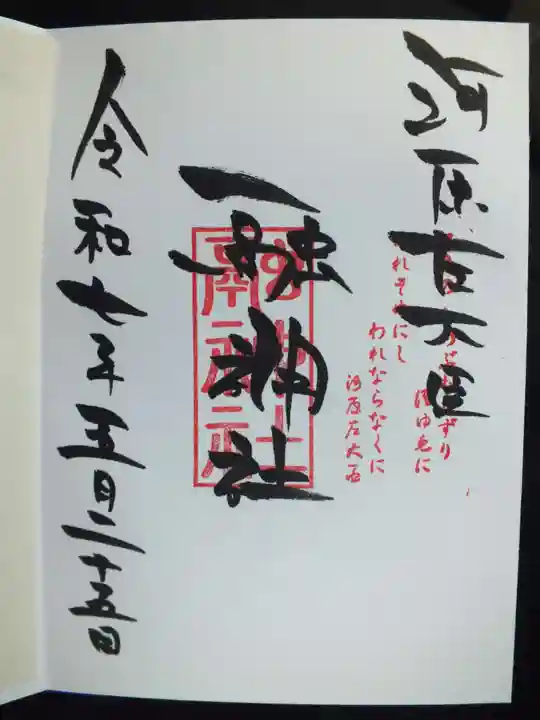 河原左大臣
れそめにし
われならなくに
河原左大臣
融神社
令和七年五月二十五日